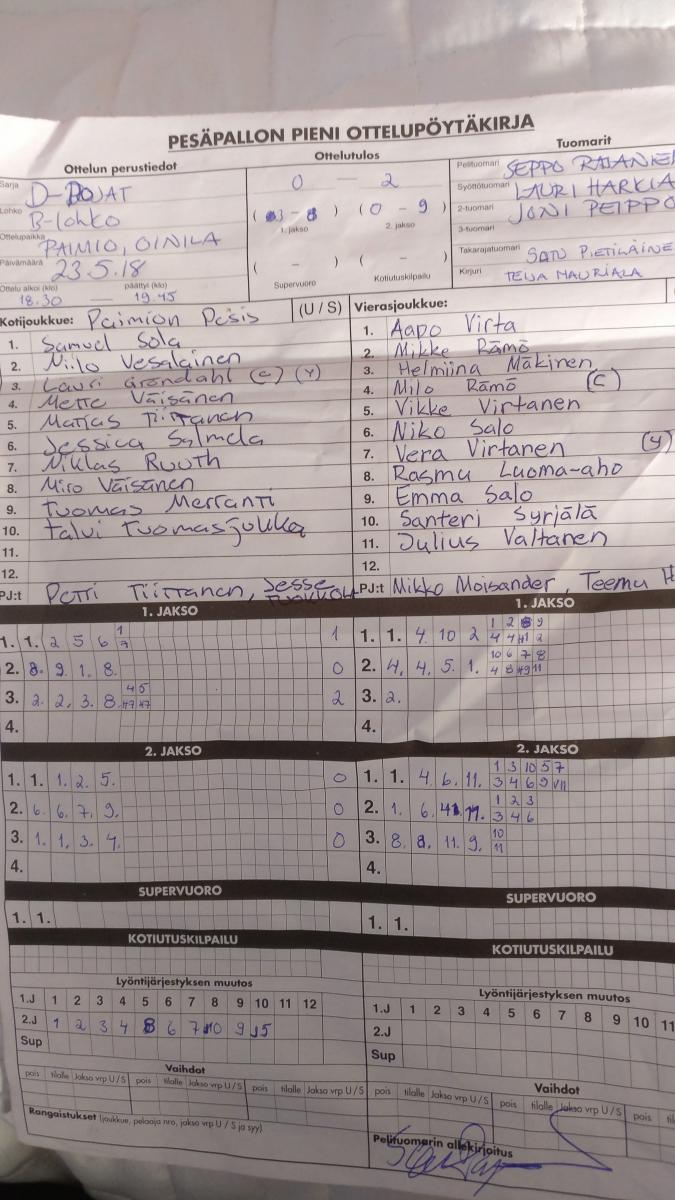 PESÄPALLON PIENI OTTELUPÖYTÄKIRJA
Ottelun perustiedot Ottelutulos Tuomarit
Sarja D-POJAT
Lohko B-lohko
Ottelupaikka PAIMIO, OINILA
Päivämäärä 23.5.18
Ottelu alkoi (klo) päättyi (klo)
18.30 — 19.45
0 — 2
( 3 - 8 ) ( 0 - 9 )
1. jakso 2. jakso
( - ) ( - )
Supervuoro Kotiutuskilpailu
Pelituomari SEPPO
Syöttötuomari LAURI HARKIA
2-tuomari JONI PEIPPO
3-tuomari
Takarajatuomari SATU PIETILÄINE
Kirjuri TEIJA MAURIALA
Kotijoukkue: Paimion Pesis (U / S)
1. Samuel Sola
2. Niilo Vesalainen
3. Lauri Gröndahl (C) (Y)
4. Mette Väisänen
5. Mattas Tiittanen
6. Jessica Salmela
7. Niklas Ruuth
8. Miro Väisänen
9. Tuomas Merranti
10. Talvi Tuomasjukka
11.
12.
PJ:t Petri Tiittanen, Jesse
Vierasjoukkue:
1. Aapo Virta
2. Mikke Rämö
3. Helmiina Mäkinen
4. Milo Rämö (C)
5. Vikke Virtanen
6. Niko Salo
7. Vera Virtanen (Y)
8. Rasmu Luoma-aho
9. Emma Salo
10. Santeri Syrjälä
11. Julius Valtanen
12.
PJ:t Mikko Moisander, Teemu H
1. JAKSO
1. 1. 2 5 6 1 7 1
2. 8. 9. 1. 8. 0
3. 2. 2. 3. 8. 4 5 #7 #7 2
4.
2. JAKSO
1. 1. 1. 2. 5. 0
2. 6. 6. 7. 9. 0
3. 1. 1. 3. 4. 0
4.
SUPERVUORO
1. 1.
KOTIUTUSKILPAILU
1. JAKSO
1. 1. 4. 10 2 1 2 8 9
4 4 #1 2
2. 4. 4. 5. 1. 10 6 7 8
4 8 #9 11
3. 2.
4.
2. JAKSO
1. 1. 4. 6. 11. 1 3 10 5 7
3 4 6 9 VII
2. 1. 6. 11. 1 2 3
3 4 6
3. 8. 8. 11. 9. 10
11
4.
SUPERVUORO
1. 1.
KOTIUTUSKILPAILU
Lyöntijärjestyksen muutos
1.J 1 2 3 4 5 6 7 8 9 10 11 12
2.J 1 2 3 4 8 6 7 10 9 5
Sup
Vaihdot
pois tilalle Jakso vrp U / S pois tilalle Jakso vrp U / S pois tilalle Jakso vrp U / S
Rangaistukset (joukkue, pelaaja nro, jakso vrp U / S ja syy)
Lyöntijärjestyksen muutos
1.J 1 2 3 4 5 6 7 8 9 10 11
2.J
Sup
Vaihdot
pois tilalle Jakso vrp U / S pois tilalle Jakso vrp U / S pois
Pelituomarin allekirjoitus